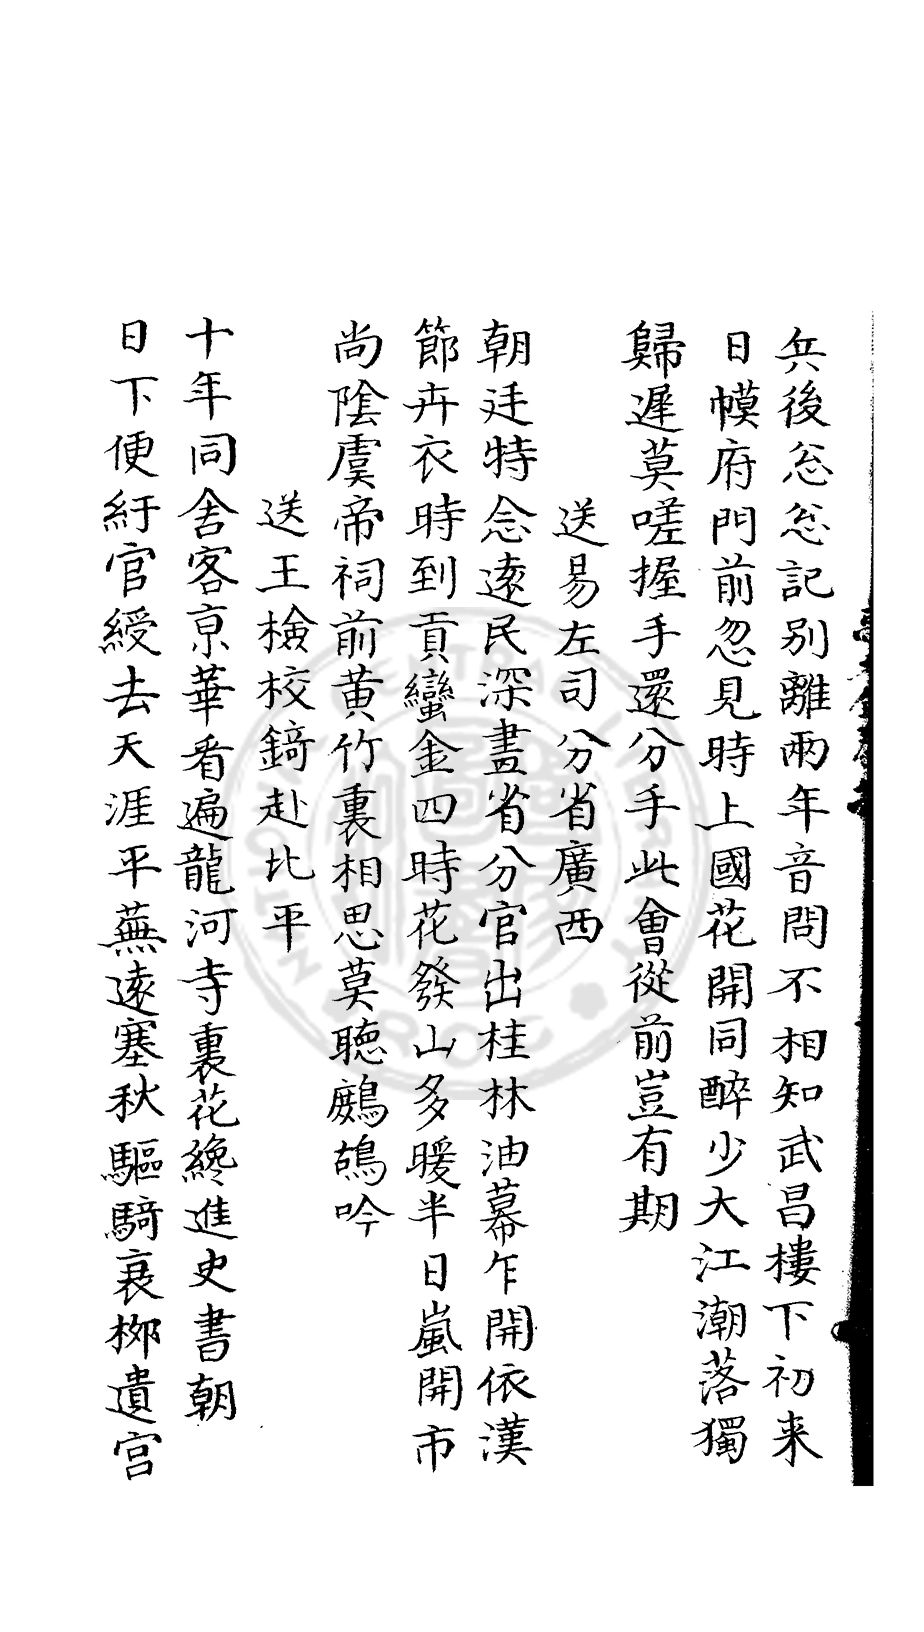 兵後忩忩記別離兩年音問不相知武昌樓下初来
日幙府門前忽見時上國花開同醉少大江潮落獨
歸遲莫嗟握手還分手此會從前豈有期
送易左司分省廣西
朝廷特念遠民深盡省分官出桂林油幕乍開依漢
節卉衣時到貢蠻金四時花發山多暖半日嵐開市
尚陰虞帝祠前黄竹裏相思莫聽鷓鴣吟
送王檢校錡赴北平
十年同舍客京華看遍龍河寺裏花纔進史書朝
日下便紆官綬去天涯平蕪遠塞秋驅騎衰栁遺宫